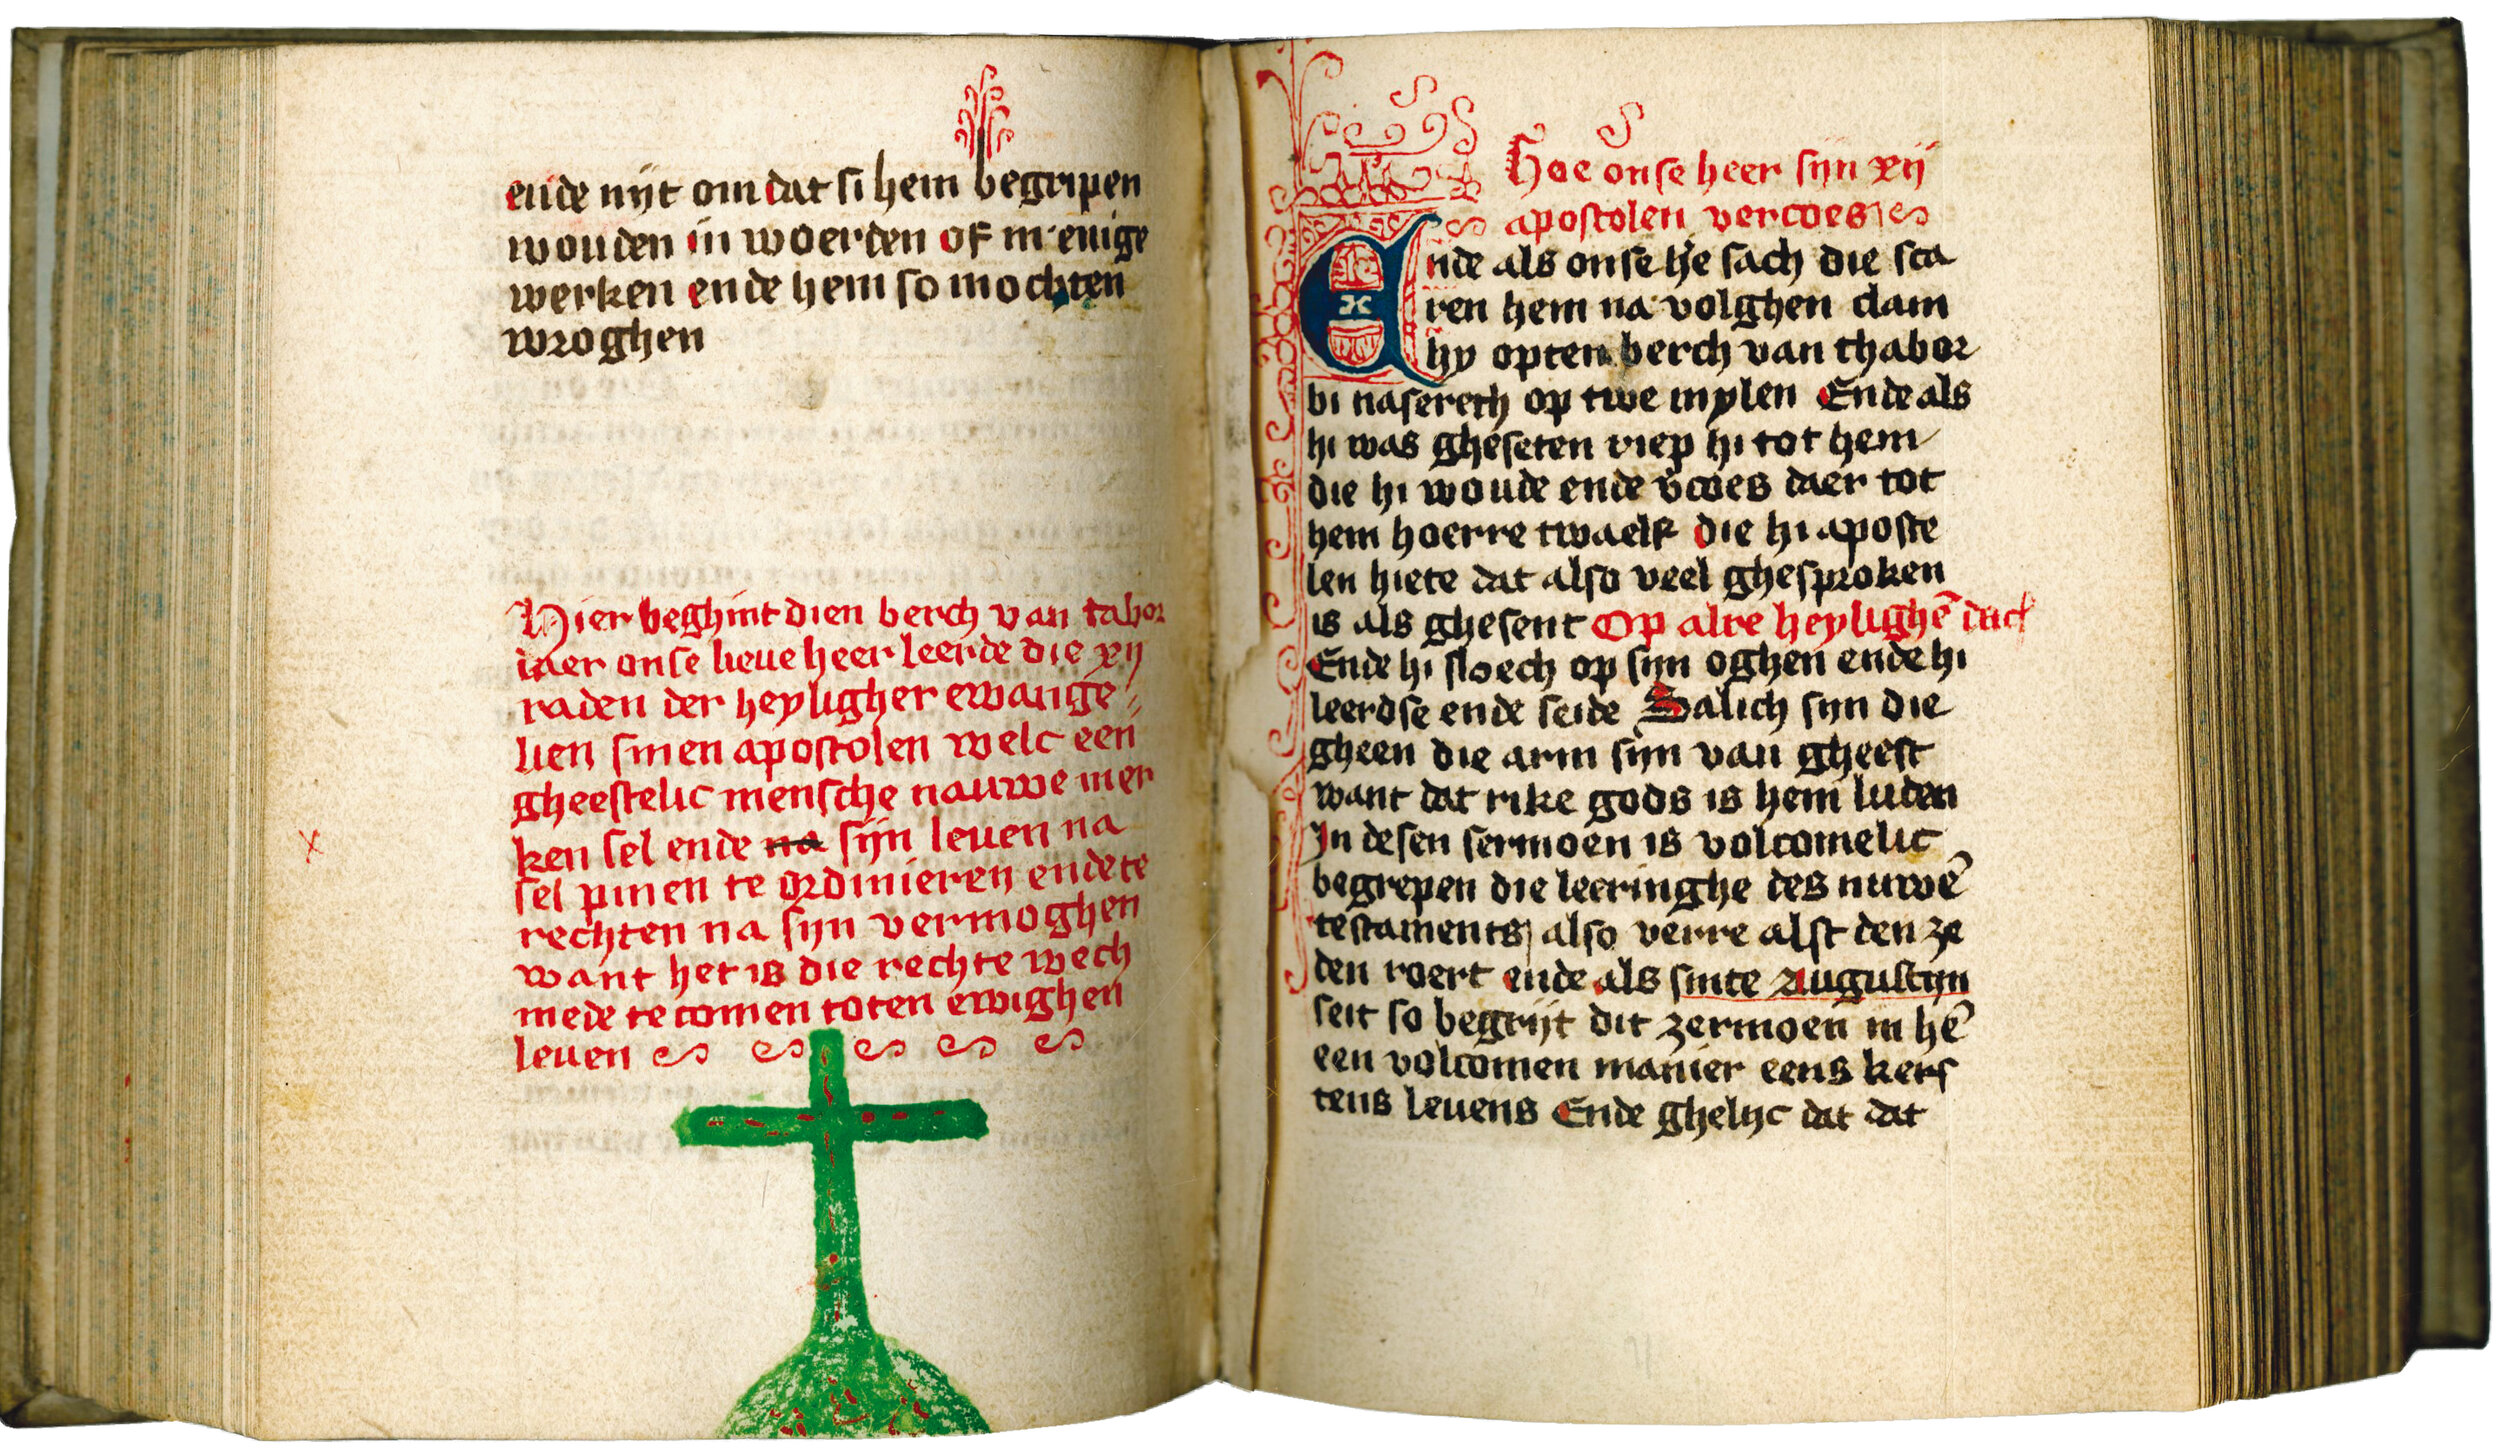 ende nyt om dat si hem begripen
wouden in woerden of in enige
werken ende hem so mochten
wroghen
Hier beghint dien berch van tabor
daer onse lieue heer leerde die xij
raden der heyligher ewange
lien sinen apostolen welc een
gheestelic mensche nauwe mer
ken sel ende na sijn leuen na
sel pinen te ordinieren ende te
rechten na sijn vermoghen
want het is die rechte wech
mede te comen toten ewighen
leuen
x
Hoe onse heer sijn xij
apostolen vercoes
Ende als onse he sach die sca
ren hem na volghen clam
hy opten berch van thabor
bi nasereth op twe mylen Ende als
hi was gheseten riep hi tot hem
die hi woude ende vcoes daer tot
hem hoerre twaelf die hi aposte
len hiete dat also veel ghesproken
is als ghesent Op alre heylighē dach
Ende hi sloech op sijn oghen ende hi
leerdse ende seide Salich sijn die
gheen die arm sijn van gheest
want dat rike gods is hem luden
In desen sermoen is volcomelic
begrepen die leeringhe des nuwē
testaments also verre alst den ze
den roert ende als sinte Augustijn
seit so begrijt dit zermoen in hē
een volcomen manier eens kers
tens leuens Ende ghelijc dat dat